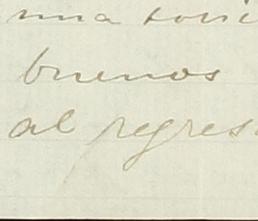 una
buenos
al regres